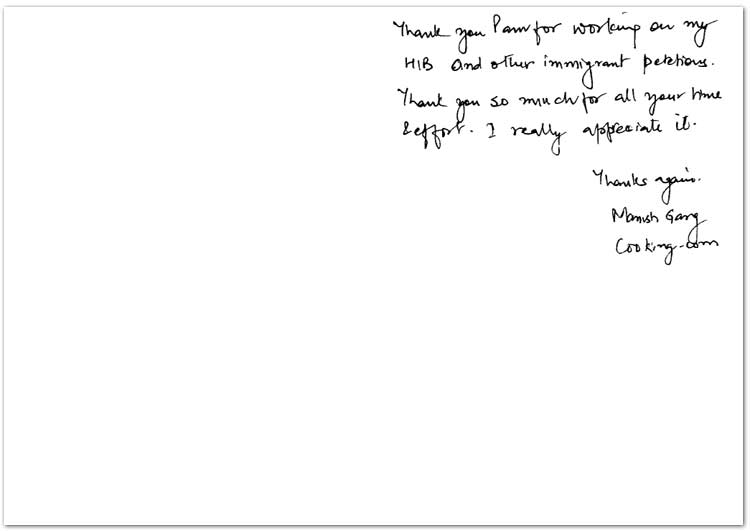 Thank you Pam for working on my
H1B and other immigrant petetions.
Thank you so much for all your time
& effort. I really appreciate it.
Thanks again.
Manish Garg
Cooking.com